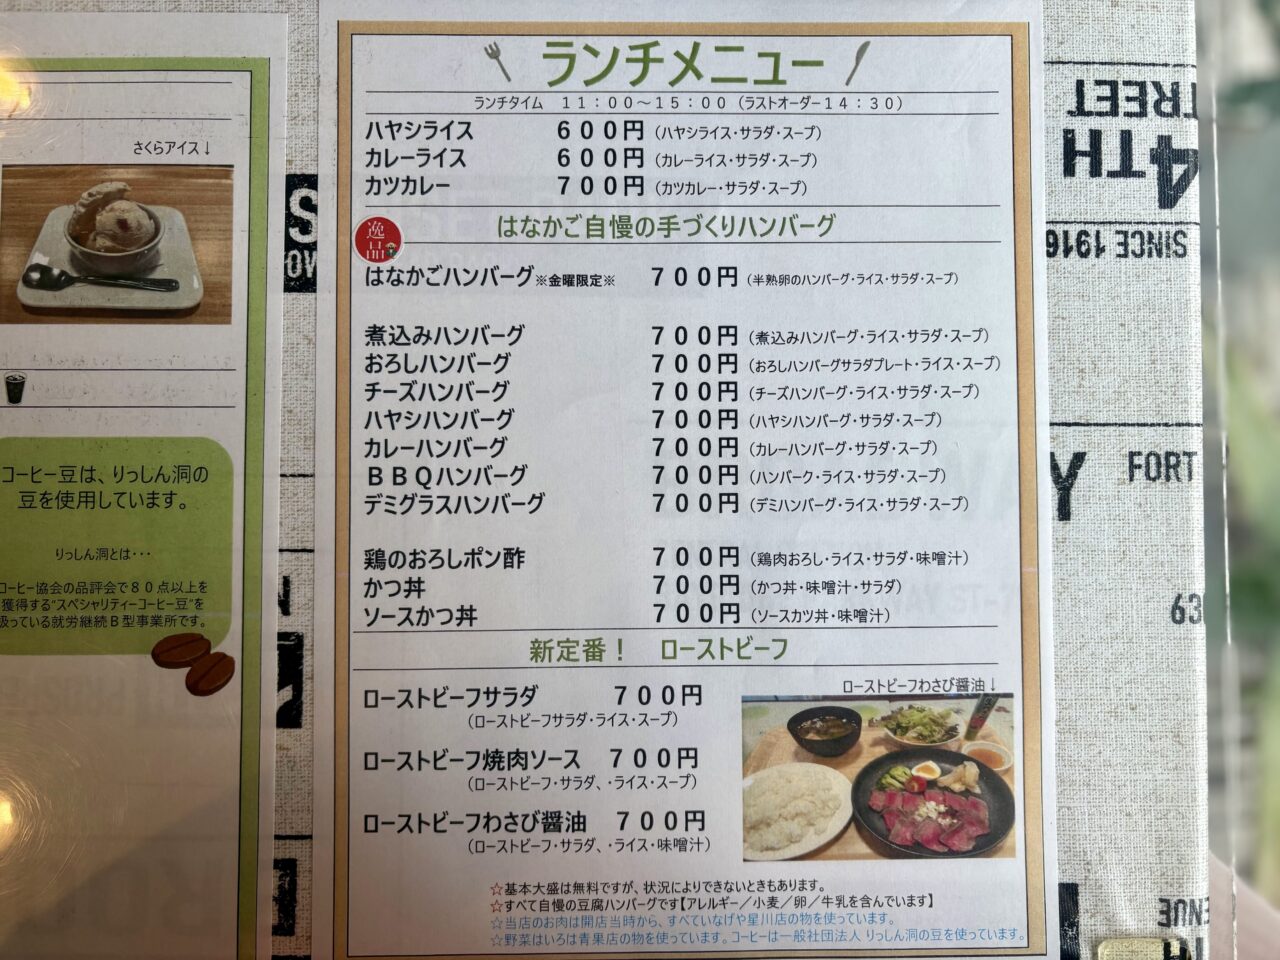 さくらアイス↓
コーヒー豆は、りっしん洞の
豆を使用しています。
りっしん洞とは・・・
コーヒー協会の品評会で80点以上を
獲得する"スペシャリティーコーヒー豆"を
扱っている就労継続B型事業所です。
ランチメニュー
ランチタイム 11:00~15:00 (ラストオーダー14:30)
ハヤシライス 600円 (ハヤシライス・サラダ・スープ)
カレーライス 600円 (カレーライス・サラダ・スープ)
カツカレー 700円 (カツカレー・サラダ・スープ)
逸品
はなかご自慢の手づくりハンバーグ
はなかごハンバーグ※金曜限定※ 700円 (半熟卵のハンバーグ・ライス・サラダ・スープ)
煮込みハンバーグ 700円 (煮込みハンバーグ・ライス・サラダ・スープ)
おろしハンバーグ 700円 (おろしハンバーグサラダプレート・ライス・スープ)
チーズハンバーグ 700円 (チーズハンバーグ・ライス・サラダ・スープ)
ハヤシハンバーグ 700円 (ハヤシハンバーグ・サラダ・スープ)
カレーハンバーグ 700円 (カレーハンバーグ・サラダ・スープ)
BBQハンバーグ 700円 (ハンバーク・ライス・サラダ・スープ)
デミグラスハンバーグ 700円 (デミハンバーグ・ライス・サラダ・スープ)
鶏のおろしポン酢 700円 (鶏肉おろし・ライス・サラダ・味噌汁)
かつ丼 700円 (かつ丼・味噌汁・サラダ)
ソースかつ丼 700円 (ソースカツ丼・味噌汁)
新定番! ローストビーフ
ローストビーフサラダ 700円
(ローストビーフサラダ・ライス・スープ)
ローストビーフ焼肉ソース 700円
(ローストビーフ・サラダ、・ライス・スープ)
ローストビーフわさび醤油 700円
(ローストビーフ・サラダ、・ライス・味噌汁)
ローストビーフわさび醤油↓
☆基本大盛は無料ですが、状況によりできないときもあります。
☆すべて自慢の豆腐ハンバーグです【アレルギー/小麦/卵/牛乳を含んでいます】
☆当店のお肉は開店当時から、すべていなげや星川店の物を使っています。
☆野菜はいろは青果店の物を使っています。コーヒーは一般社団法人 りっしん洞の豆を使っています。
4TH
STREET
SINCE 1916
FORT
63